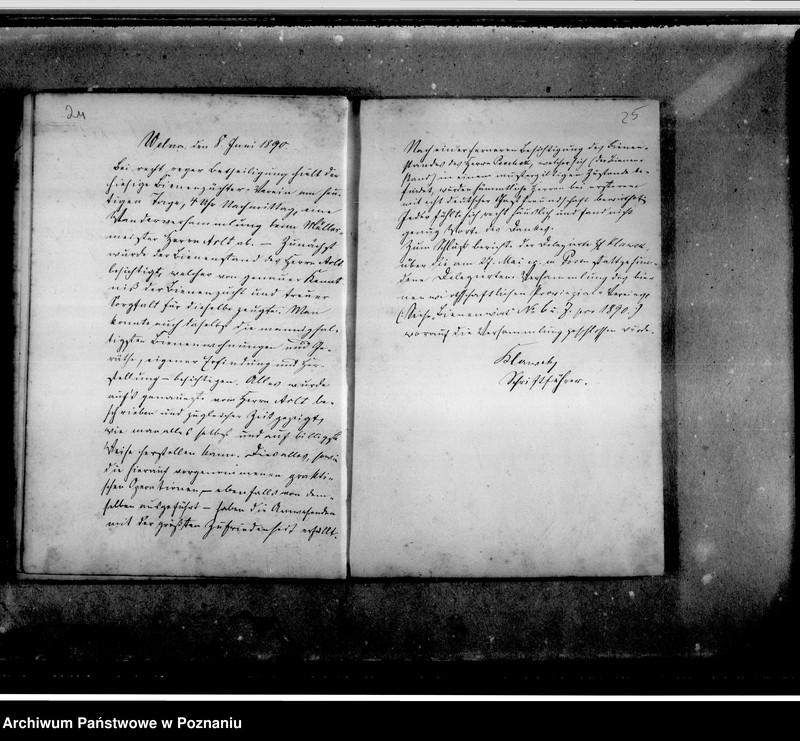 24
Welna, den 8. Juni 1890.
Bei recht reger Betheiligung hielt der
hiesige Bienenzüchter-Verein am heu-
tigen Tage, 4 Uhr Nachmittags eine
Wanderversammlung beim Müller-
meister Herrn Arlt ab. — Zunächst
wurde der Bienenstand des Herrn Arlt
besichtigt, welcher von genauer Kennt-
niß der Bienenzucht und treuer
Sorgfalt für dieselbe zeugte. Man
konnte auch daselbst die mannigfal-
tigsten Bienenwohnungen und Ge-
räthe, eigener Erfindung und Her-
stellung — besichtigen. Alles wurde
aufs genaueste vom Herrn Arlt be-
schrieben und zugleicher Zeit gezeigt,
wie man alles selbst und auf billigste
Weise herstellen kann. Dies alles, sowie
die hierauf vorgenommenen prakti-
schen Operationen — ebenfalls von dem-
selben ausgeführt — haben die Anwesenden
mit der größten Zufriedenheit erfüllt.
25
Nach einer ferneren Besichtigung des Bienen-
standes des Herrn welcher sich (der Bienen-
stand) in einem Zustande be-
findet, wurden sämmtliche Herren bei ersterem
mit echt deutscher Gastfreundschaft bewirthet.
Jeder fühlte sich recht und fand nicht
genug Worte des Dankes.
Zum Schluß berichtete der Delegirte H Klawek,
über die am 27. Mai cr. in Posen stattgefun-
dene Delegirten Versammlung des bie-
nenwirthschaftlichen Provinzial-Vereins,
(Siehe Bienenwirt № 6 u. 7. pro 1890.)
worauf die Versammlung geschlossen wurde.
Klawek,
Schriftführer.
Archiwum Państwowe w Poznaniu